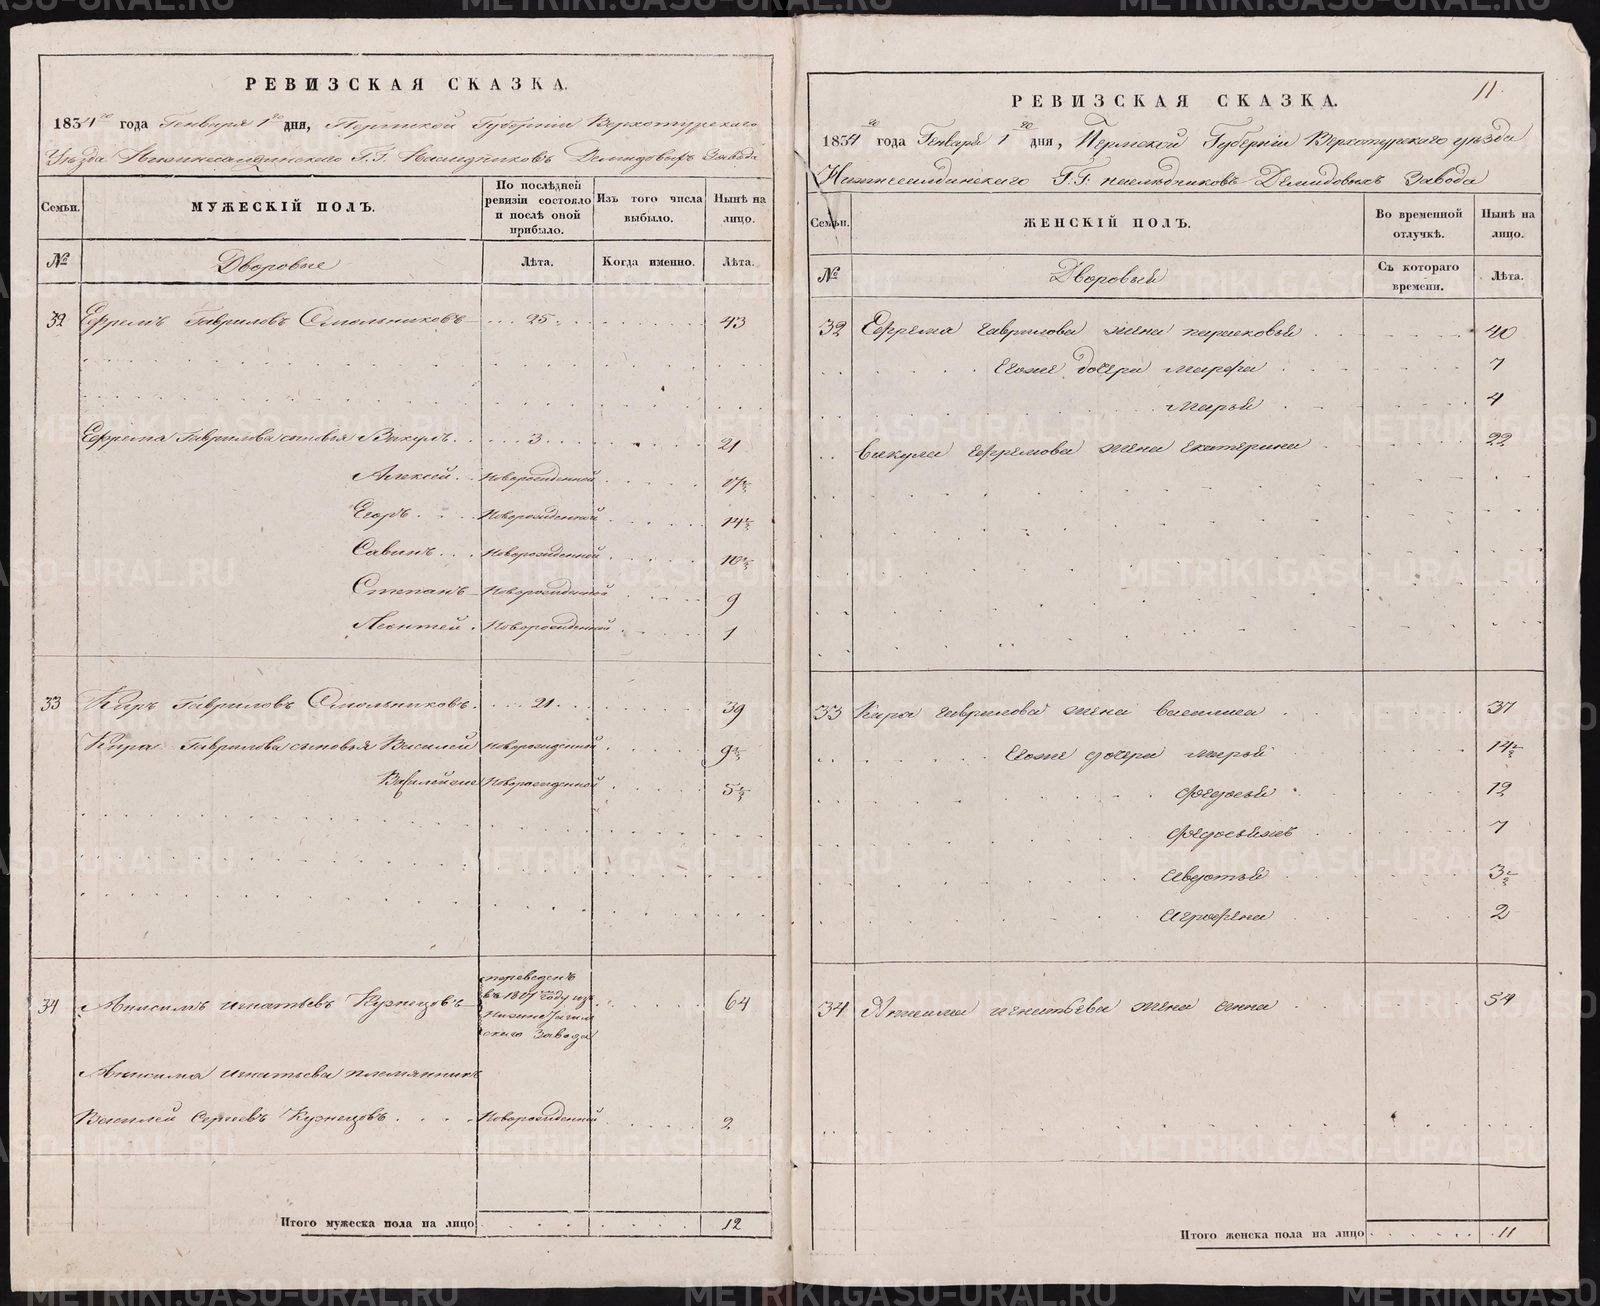 РЕВИЗСКАЯ СКАЗКА.
1834го года Генваря 1го дня, Пермской Губернiи Верхотурскаго
Уѣзда Нижнесалдинскаго Г.Г. Наследниковъ Демидовыхъ Завода
Семьи. МУЖЕСКIЙ ПОЛЪ. По послѣдней ревизiи состояло и послѣ оной прибыло. Изъ того числа выбыло. Нынѣ на лицо.
№ Дворовые Лѣта. Когда именно. Лѣта.
32 Ефремъ Гавриловъ Смольниковъ 25 43
Ефрема Гаврилова сыновья Вакулъ 3 21
Алексей Новорожденной 17½
Егоръ Новорожденной 14½
Савинъ Новорожденной 10½
Степанъ Новорожденной 9
Леонтей Новорожденной 1
33 Киръ Гавриловъ Смольниковъ 21 39
Кира Гаврилова сыновья Василей Новорожденной 9½
Василейже Новорожденной 5½
34 Анисимъ Игнатьевъ Кузнецовъ переведенъ 64
въ году изъ
Нижнетагил
скаго Завода
Анисима Игнатьева племянникъ
Василей Сергеевъ Кузнецовъ Новорожденной 2
Итого мужеска пола на лицо 12
11.
РЕВИЗСКАЯ СКАЗКА.
1834го года Генваря 1го дня, Пермской Губернiи Верхотурскаго уѣзда
Нижнесалдинскаго Г.Г. наследниковъ Демидовыхъ Завода
Семьи. ЖЕНСКIЙ ПОЛЪ. Во временной отлучкѣ. Нынѣ на лицо.
№ Дворовыя Съ котораго времени. Лѣта.
32 Ефрема Гаврилова жена Парасковья 40
Егоже дочери Марфа 7
Марья 4
Вакула Ефремова жена Екатерина 22
33 Кира Гаврилова жена Василиса 37
Егоже дочери Марья 14½
Федосья 12
Федосьяжъ 7
Авдотья 3½
Аграфена 2
34 Анисима Игнатьева жена Анна 54
Итого женска пола на лицо 11
METRIKI.GASO-URAL.RU